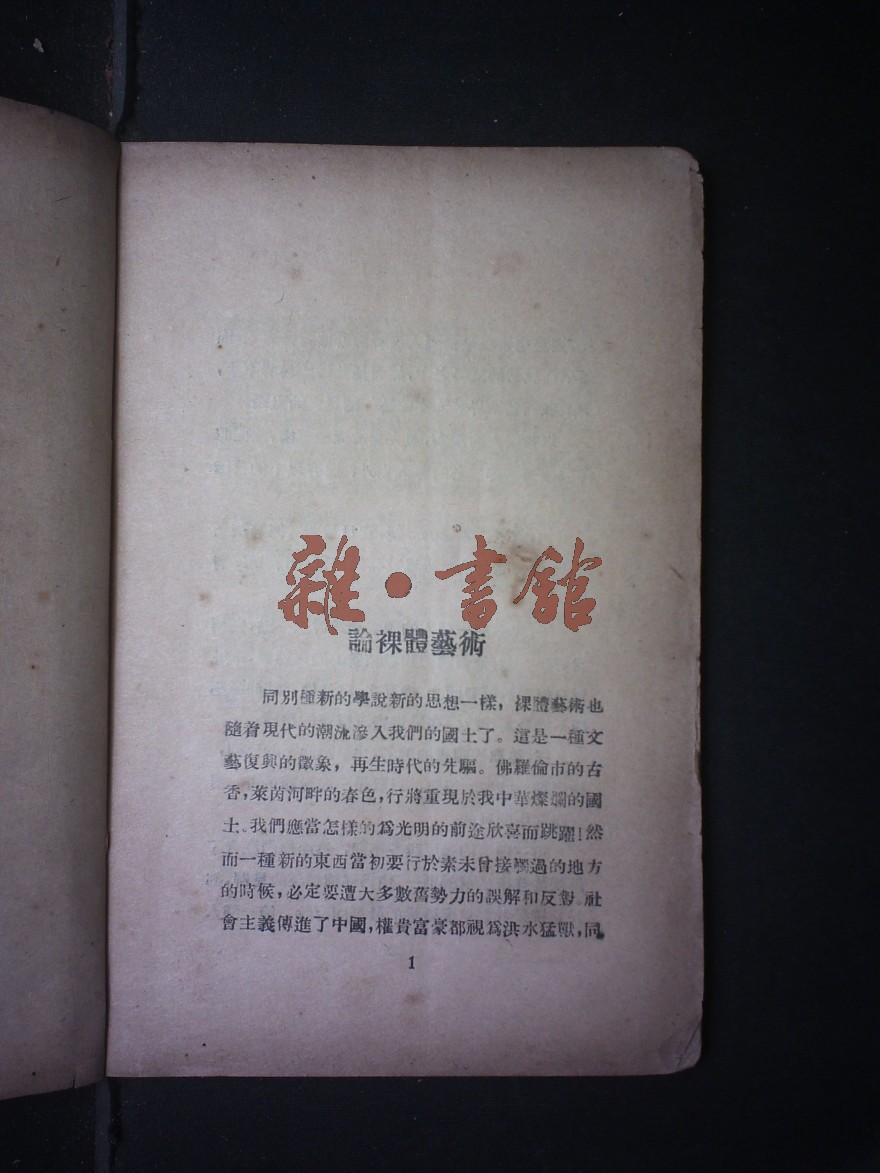 雜·書館
論裸體藝術
同別種新的學說新的思想一樣，裸體藝術也
隨着現代的潮流滲入我們的國土了。這是一種文
藝復興的徵象，再生時代的先驅。佛羅倫市的古
香，萊茵河畔的春色，行將重現於我中華燦爛的國
土。我們應當怎樣的爲光明的前途欣喜而跳躍！然
而一種新的東西當初要行於素未曾接觸過的地方
的時候，必定要遭大多數舊勢力的誤解和反對。社
會主義傳進了中國，權貴富豪都視爲洪水猛獸，同
1